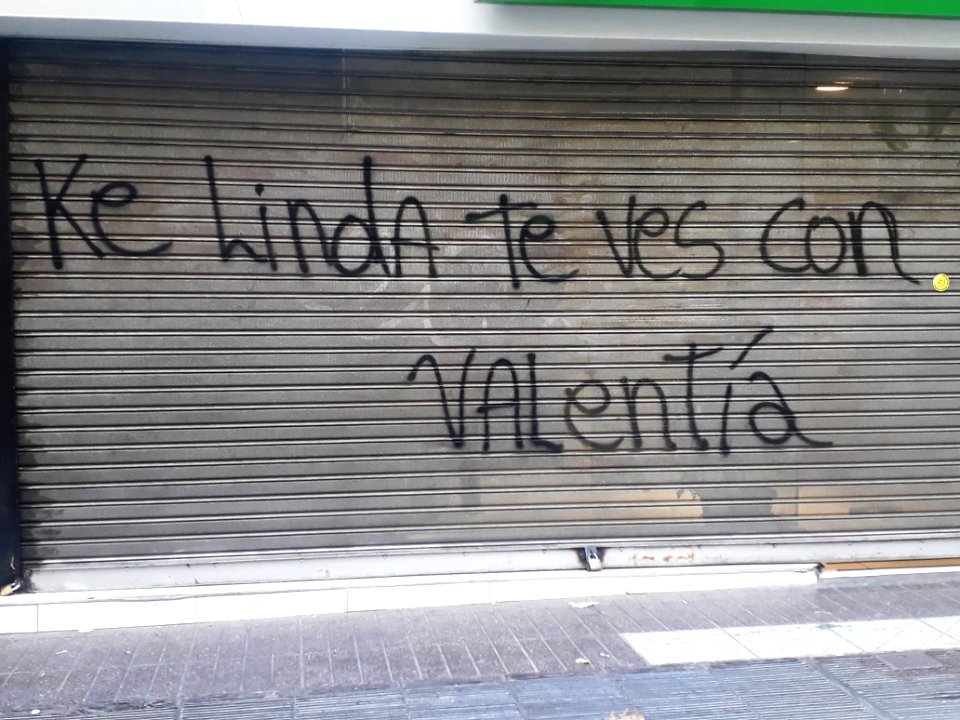 Ke LindA Te ves con
VALentía